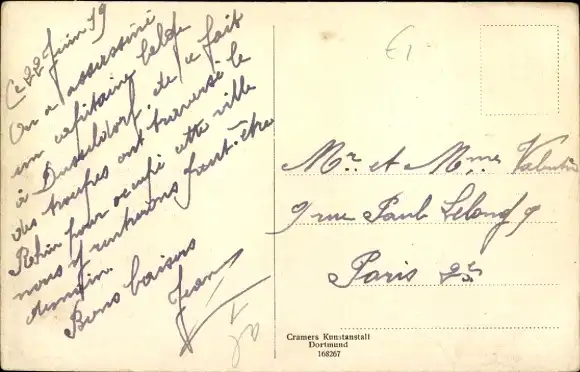 Ce 22 Juin 19
On a assassiné
un capitaine belge
à Dusseldorf, de ce fait
des troupes ont traversé le
Rhin pour occupé cette ville
nous y rentrerons peut-être
demain.
Bons baisers
Jean
E1
Mr. et Mme. Valentin
9 rue Paul Lelong 9
Paris 2e
Cramers Kunstanstalt
Dortmund
168267